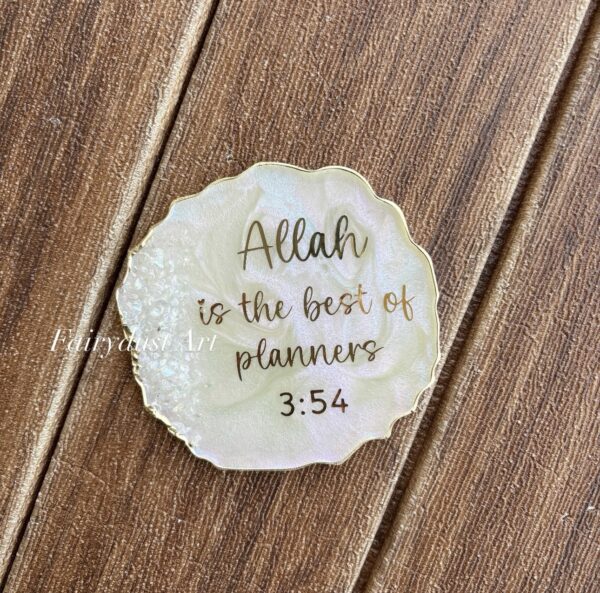 Allah
is the best of
planners
3:54
Fairydust Art